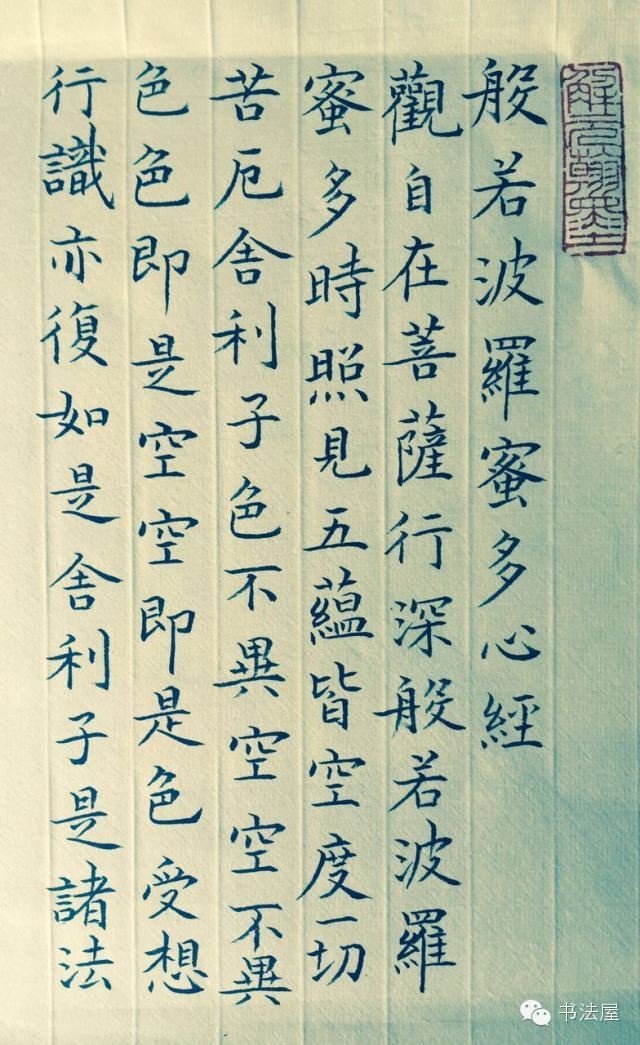 般若波羅蜜多心經
觀自在菩薩行深般若波羅
蜜多時照見五蘊皆空度一切
苦厄舍利子色不異空空不異
色色即是空空即是色受想
行識亦復如是舍利子是諸法
书法屋